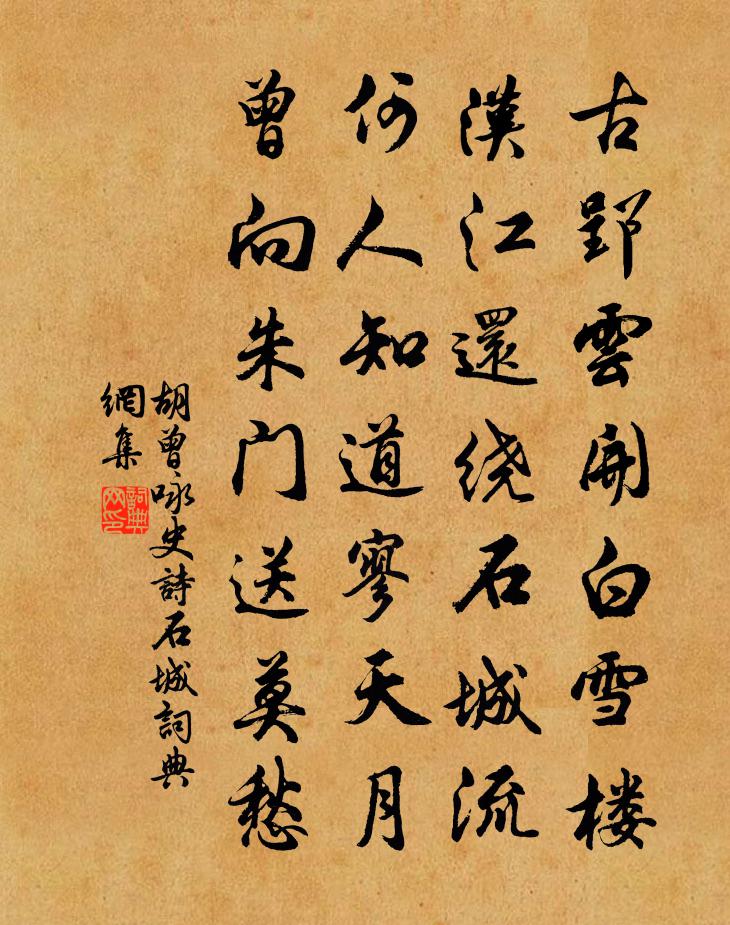 古郢雲開白雪楼
漢江還绕石城流
何人知道寥天月
曾向朱门送莫愁
胡曾咏史詩石城詞典
網集
詞典网印